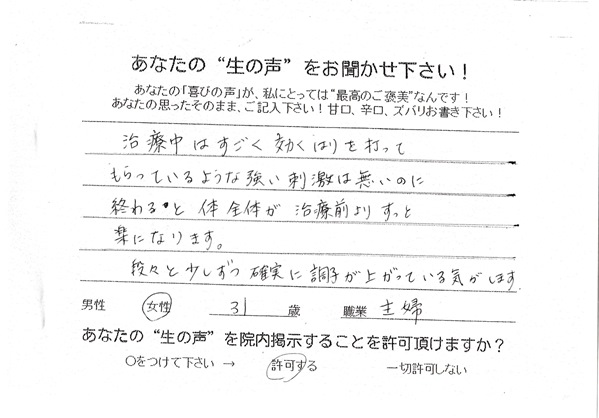 あなたの “生の声” をお聞かせ下さい！
あなたの「喜びの声」が、私にとっては“最高のご褒美”なんです！
あなたの思ったそのまま、ご記入下さい！甘口、辛口、ズバリお書き下さい！
治療中はすごく効くはりを打って
もらっているような強い刺激は無いのに
終わると体全体が治療前よりずっと
楽になります。
段々と少しずつ確実に調子が上がっている気がします
男性 女性 31 歳 職業 主婦
あなたの “生の声” を院内掲示することを許可頂けますか？
〇をつけて下さい → 許可する 一切許可しない